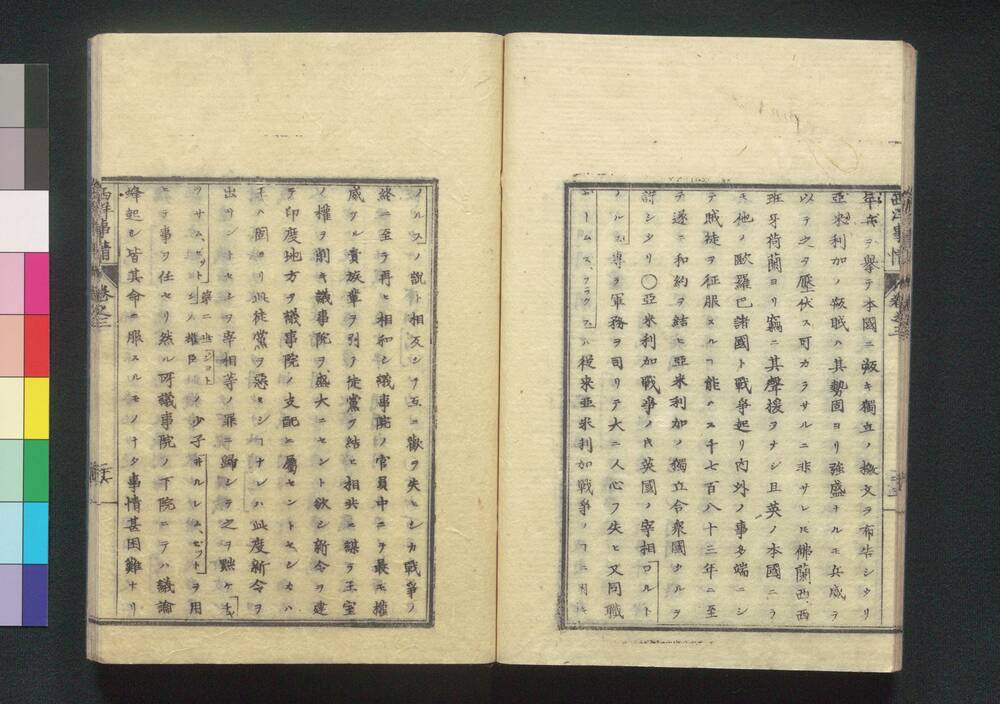 年兵ヲ擧テ本國ニ叛キ獨立ノ檄文ヲ布告シタリ
亞米利加ノ叛賊ハ其勢固ヨリ強盛ナルモ兵威ヲ
以テ之ヲ壓伏ス可カラサルニ非サレ𪜈佛蘭西、西
班牙荷蘭ヨリ竊ニ其聲援ヲナシ且英ノ本國ニテ
モ他ノ歐羅巴諸國ト戰爭起リ內外ノ事多端ニシ
テ賊徒ヲ征服スルヿ能ハス千七百八十三年ニ至
テ遂ニ和約ヲ結ヒ亞米利加ノ獨立合衆國タルヲ
許シタリ○亞米利加戰爭ノ時英國ノ宰相ロルト
ノルス專ラ軍務ヲ司リテ大ニ人心ヲ失ヒ又同職
ホームス、フラクスハ從來亞米利加戰爭ノヿニ付
西洋事情 卷之三
ノルスノ說ト相反シテ互ニ歡ヲ失ヒシカ戰爭ノ
終ニ至テ再ヒ相和シ議事院ノ官員中ニテ最モ權
威アル貴族輩ヲ引テ徒黨ヲ結ヒ相共ニ謀テ王室
ノ權ヲ削キ議事院ヲ盛大ニセント欲シ新令ヲ建
テ印度地方ヲ議事院ノ支配ニ屬セントセシカハ
王ハ固ヨリ此徒黨ヲ惡ミシヿナレハ此度新令ヲ
出サントセシヲ宰相等ノ罪ニ歸シテ之ヲ黜ケチ
ヤサム、ピット第二世ジヨルジノ權臣ノ少子井ルレム、ピットヲ用
ヒテ事ヲ任セリ然ル所議事院ノ下院ニテハ議論
蜂起シ皆其命ニ服スルモノナク事情甚困難ナリ
西洋事情 卷之三